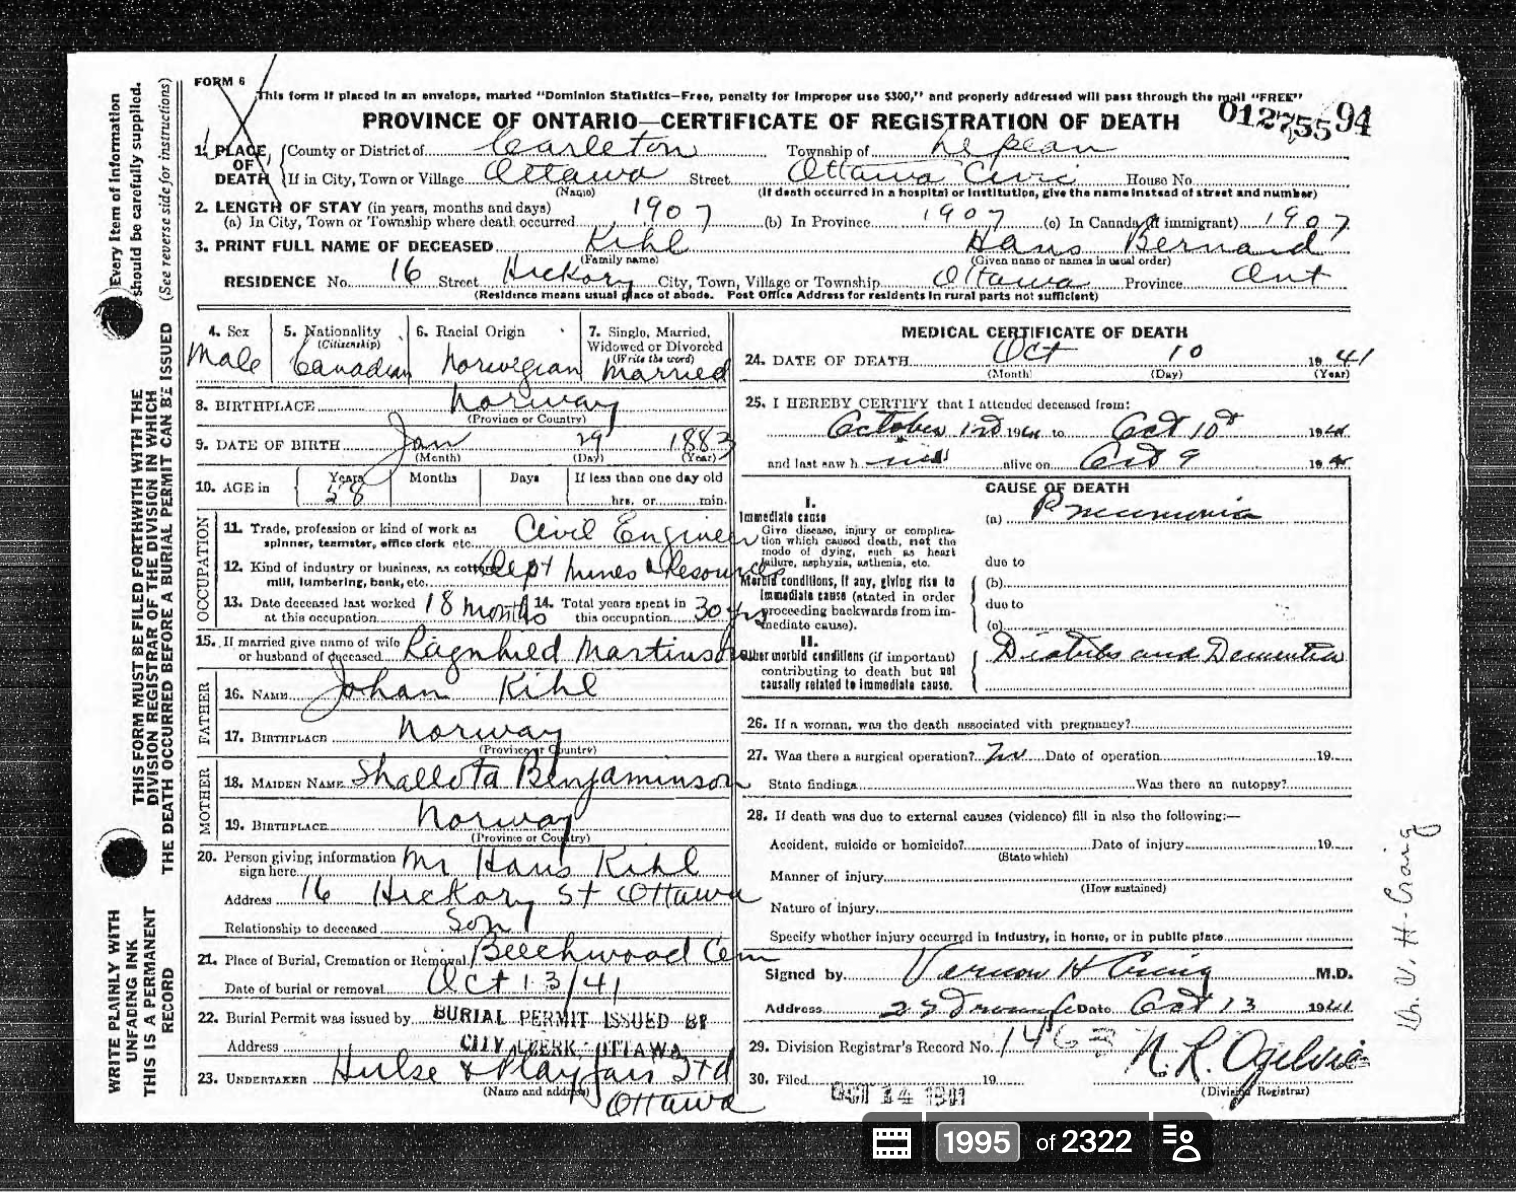 FORM 6
This form if placed in an envelope, marked "Dominion Statistics—Free, penalty for improper use $300," and properly addressed will pass through the mail "FREE"
PROVINCE OF ONTARIO—CERTIFICATE OF REGISTRATION OF DEATH
01275594
1. PLACE OF DEATH
County or District of Carleton Township of Nepean
If in City, Town or Village Ottawa Street Ottawa Civic House No.
(Name) (If death occurred in a hospital or institution, give the name instead of street and number)
2. LENGTH OF STAY (in years, months and days)
(a) In City, Town or Township where death occurred 1907 (b) In Province 1907 (c) In Canada (if immigrant) 1907
3. PRINT FULL NAME OF DECEASED Kihl Hans Bernard
(Family name) (Given name or names in usual order)
RESIDENCE No. 16 Street Hickory City, Town, Village or Township Ottawa Province Ont
(Residence means usual place of abode. Post Office Address for residents in rural parts not sufficient)
4. Sex Male
5. Nationality (Citizenship) Canadian
6. Racial Origin Norwegian
7. Single, Married, Widowed or Divorced (Write the word) Married
8. BIRTHPLACE Norway
(Province or Country)
9. DATE OF BIRTH Jan 29 1883
(Month) (Day) (Year)
10. AGE in Years 58 Months Days If less than one day old
hrs. or min.
OCCUPATION
11. Trade, profession or kind of work as spinner, teamster, office clerk etc. Civil Engineer
12. Kind of industry or business, as cotton mill, lumbering, bank, etc. Dept Mines & Resources
13. Date deceased last worked at this occupation 18 months
14. Total years spent in this occupation 30 yrs
15. If married give name of wife or husband of deceased Ragnhied Martinson
FATHER
16. NAME Johan Kihl
17. BIRTHPLACE Norway
(Province or Country)
MOTHER
18. MAIDEN NAME Shallota Benjaminson
19. BIRTHPLACE Norway
(Province or Country)
20. Person giving information sign here Mr Hans Kihl
Address 16 Hickory St Ottawa
Relationship to deceased Son
21. Place of Burial, Cremation or Removal Beechwood Cem
Date of burial or removal Oct 13/41
22. Burial Permit was issued by BURIAL PERMIT ISSUED BY
Address CITY CLERK, OTTAWA
23. UNDERTAKER Hulse & Playfair Ltd
(Name and address)
Ottawa
MEDICAL CERTIFICATE OF DEATH
24. DATE OF DEATH Oct 10 1941
(Month) (Day) (Year)
25. I HEREBY CERTIFY that I attended deceased from:
October 1941 to Oct 10th 1941
and last saw h alive on Oct 9 1941
CAUSE OF DEATH
I.
Immediate cause
Give disease, injury or complication which caused death, not the mode of dying, such as heart failure, asphyxia, asthenia, etc.
(a) Pneumonia
due to
Morbid conditions, if any, giving rise to immediate cause (stated in order proceeding backwards from immediate cause).
(b)
due to
(c)
II.
Other morbid conditions (if important) contributing to death but not causally related to immediate cause.
Diabetes and Dementia
26. If a woman, was the death associated with pregnancy?
27. Was there a surgical operation? No Date of operation 19
State findings Was there an autopsy?
28. If death was due to external causes (violence) fill in also the following:—
Accident, suicide or homicide? Date of injury 19
(State which)
Manner of injury
(How sustained)
Nature of injury
Specify whether injury occurred in industry, in home, or in public place
Signed by Vernon H Craig M.D.
Address Date Oct 13 1941
29. Division Registrar's Record No. 1463 N. R. Ogilvie
30. Filed OCT 14 1941 19 (Division Registrar)
Every item of information should be carefully supplied.
(See reverse side for instructions)
THIS FORM MUST BE FILED FORTHWITH WITH THE DIVISION REGISTRAR OF THE DIVISION IN WHICH THE DEATH OCCURRED BEFORE A BURIAL PERMIT CAN BE ISSUED
WRITE PLAINLY WITH UNFADING INK
THIS IS A PERMANENT RECORD
Dr. V. H. Craig
1995 of 2322